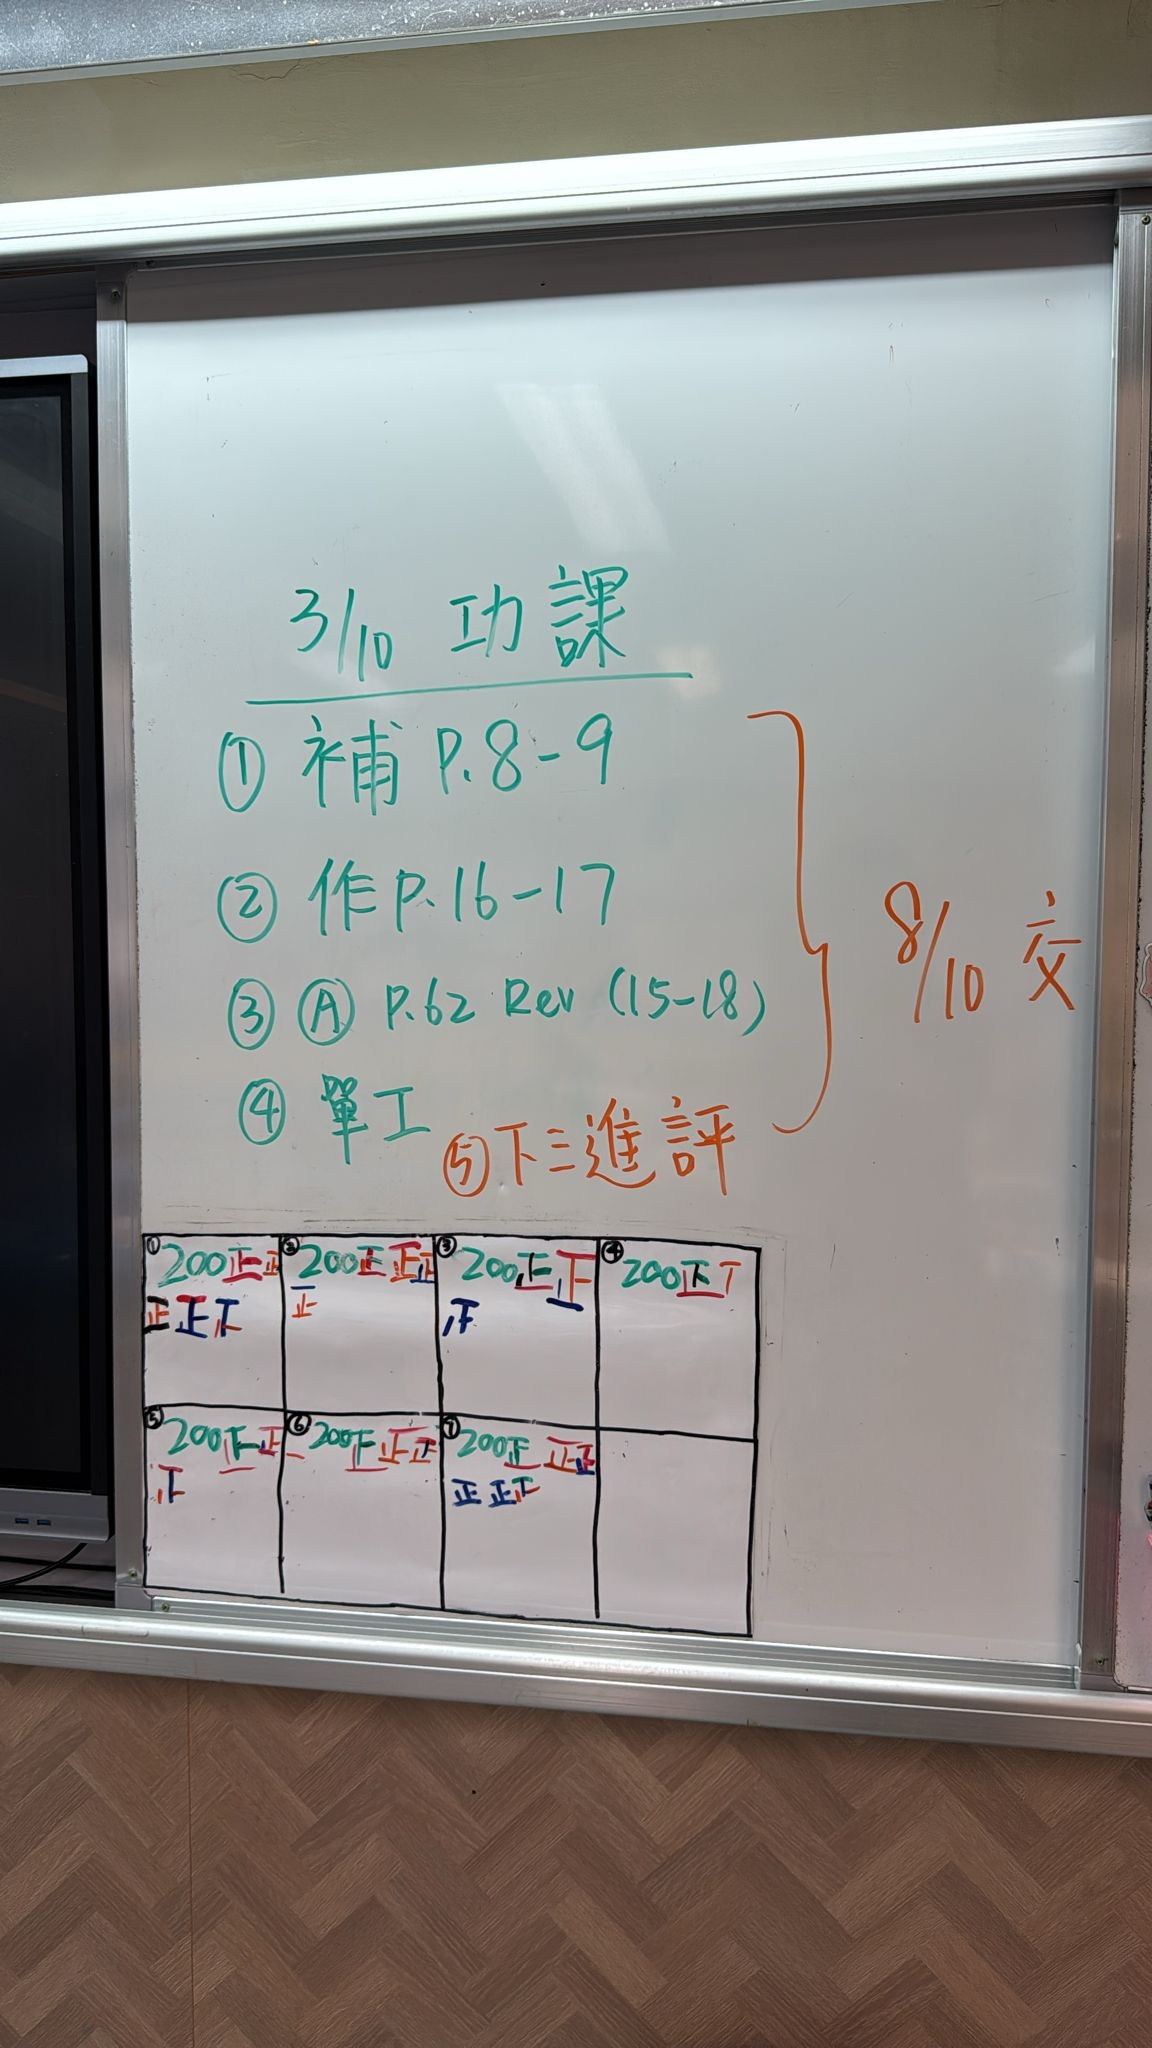 3/10 功課
① 補 P.8-9
② 作 P.16-17
③ Ⓐ P.62 Rev (15-18)
④ 單工
⑤ 下三進評
8/10 交
① 200正正
正正下
② 200正正正
正
③ 200正正
下
④ 200正丅
⑤ 200正正
下
⑥ 200正正正
⑦ 200正正正
正正下